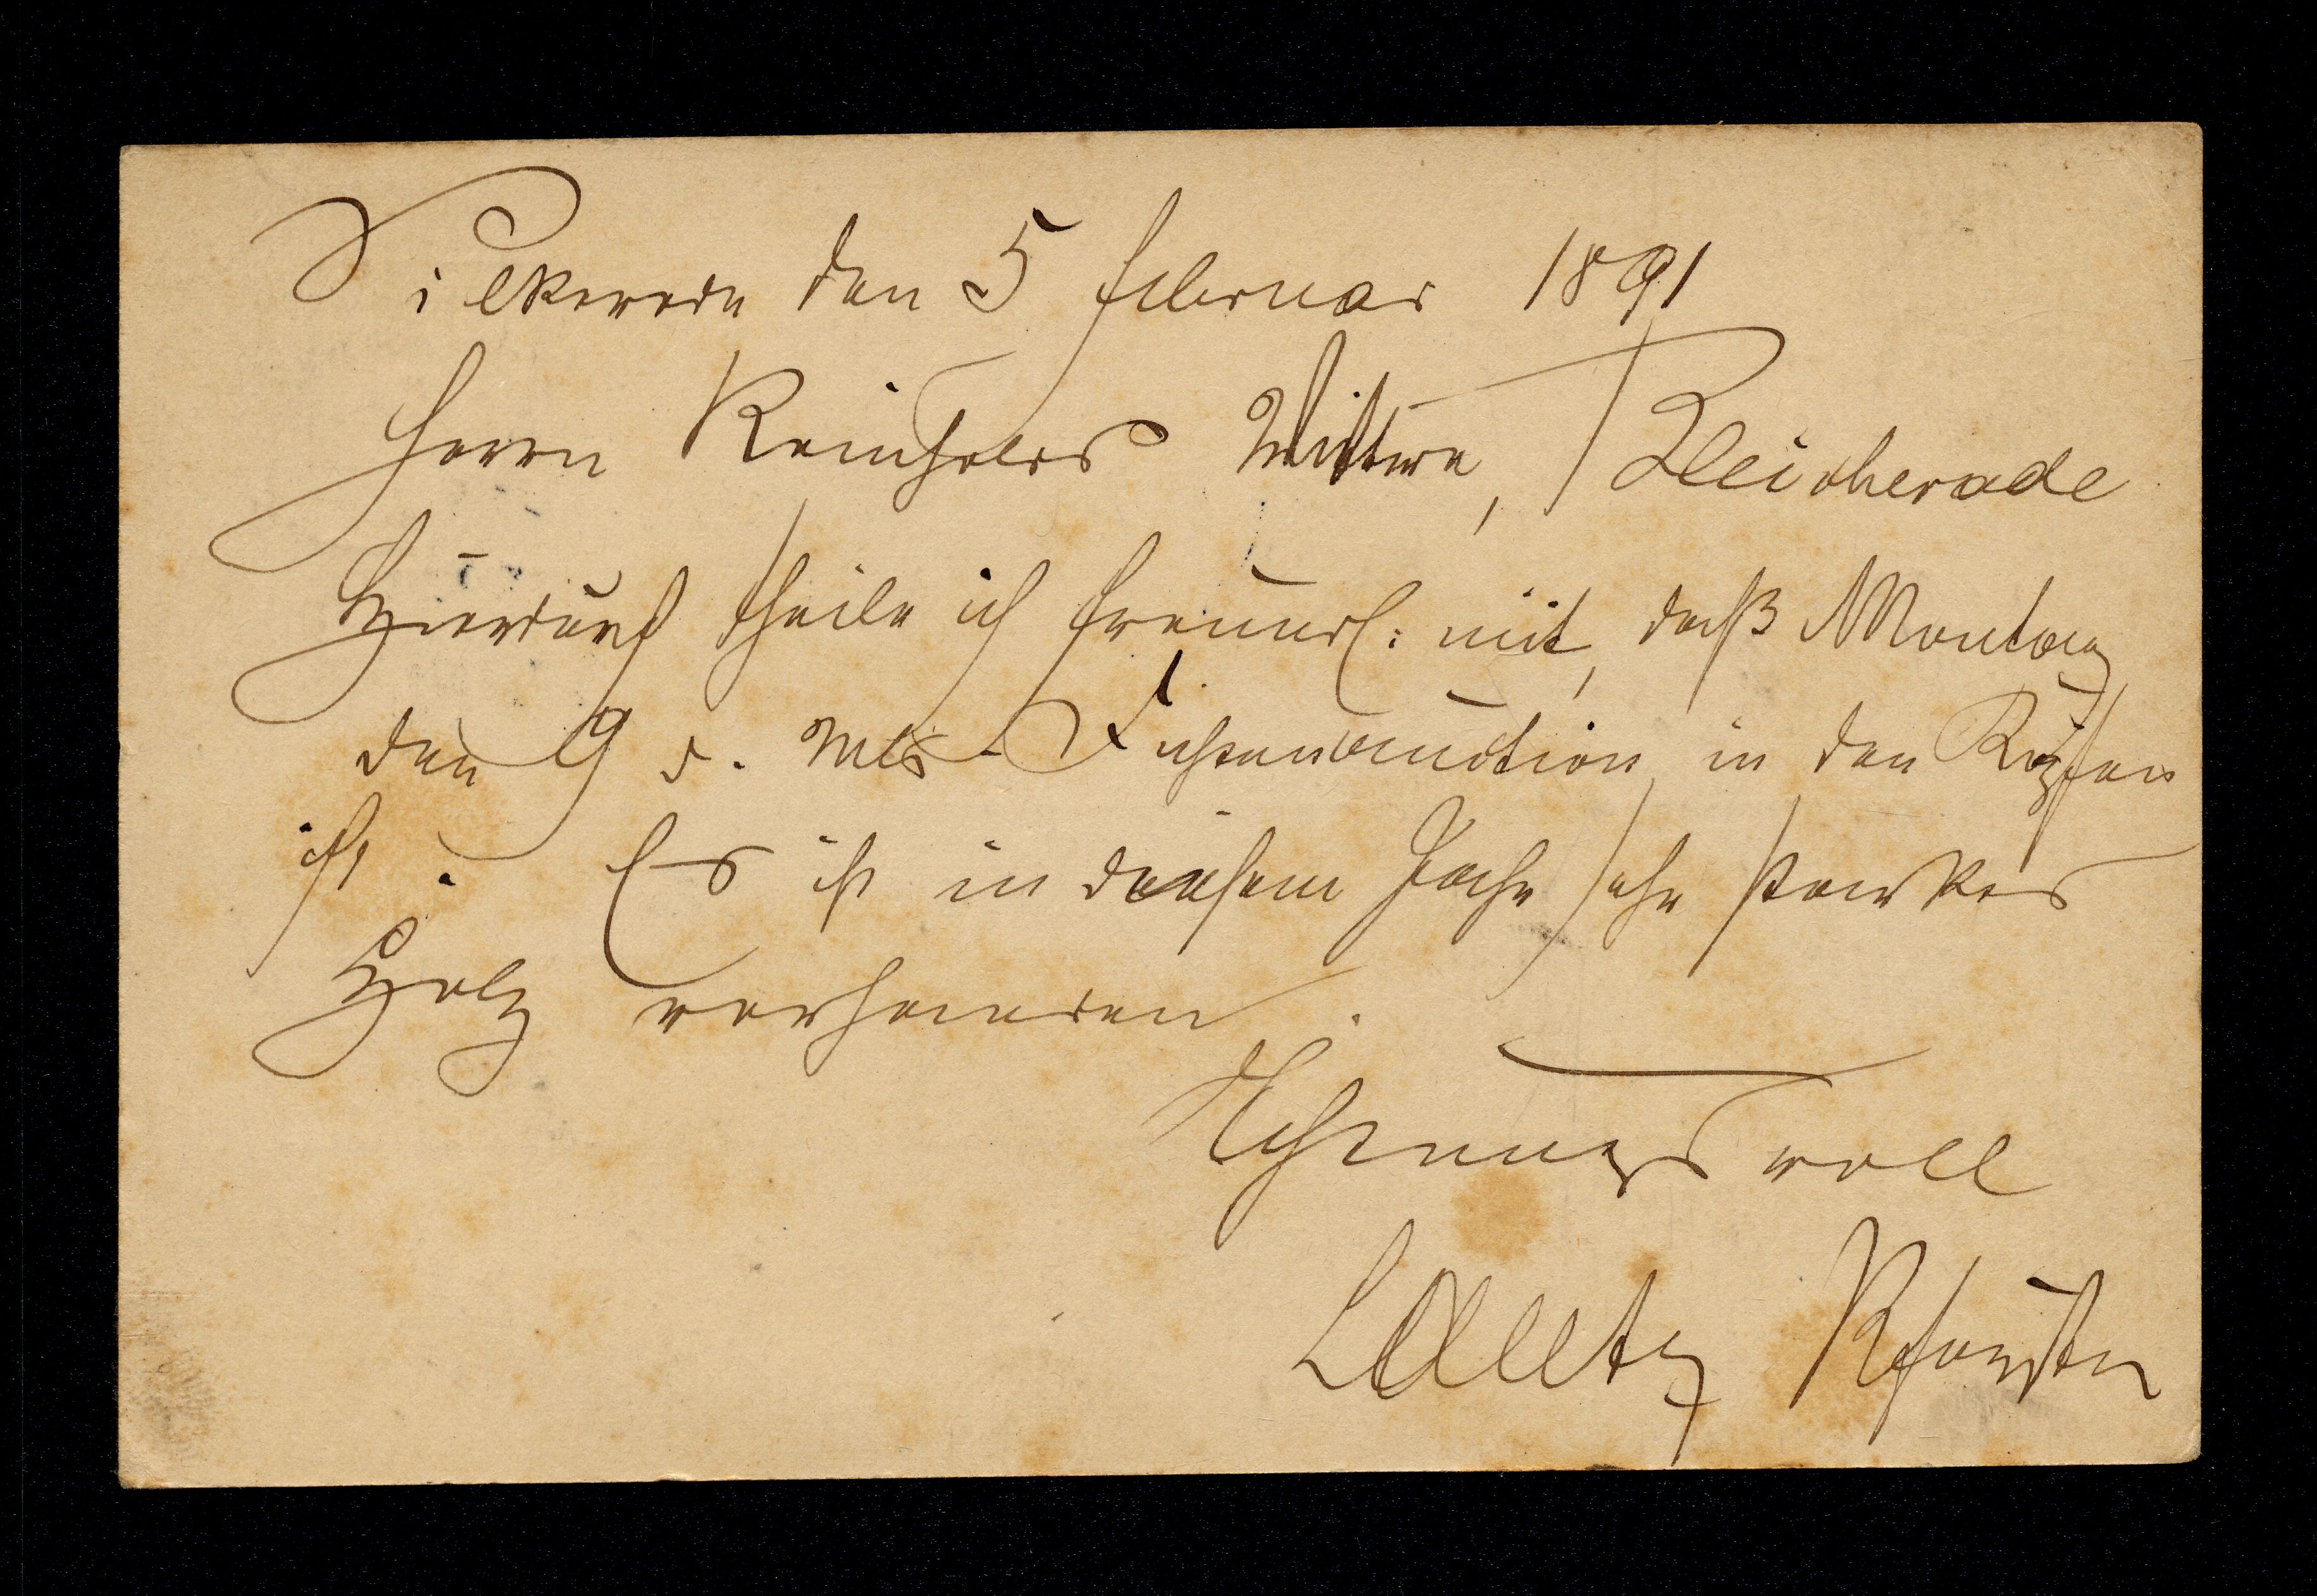 Silkerode den 5 Februar 1891
Herrn Reinholds Wittwe, Bleicherode
Hierdurch theile ich freundl: mit, daß Montag
den 9 d. Mts Fichtenauction in den
ist. Es ist in diesem Jahr sehr starkes
Holz vorhanden.
Achtungsvoll
Rförster